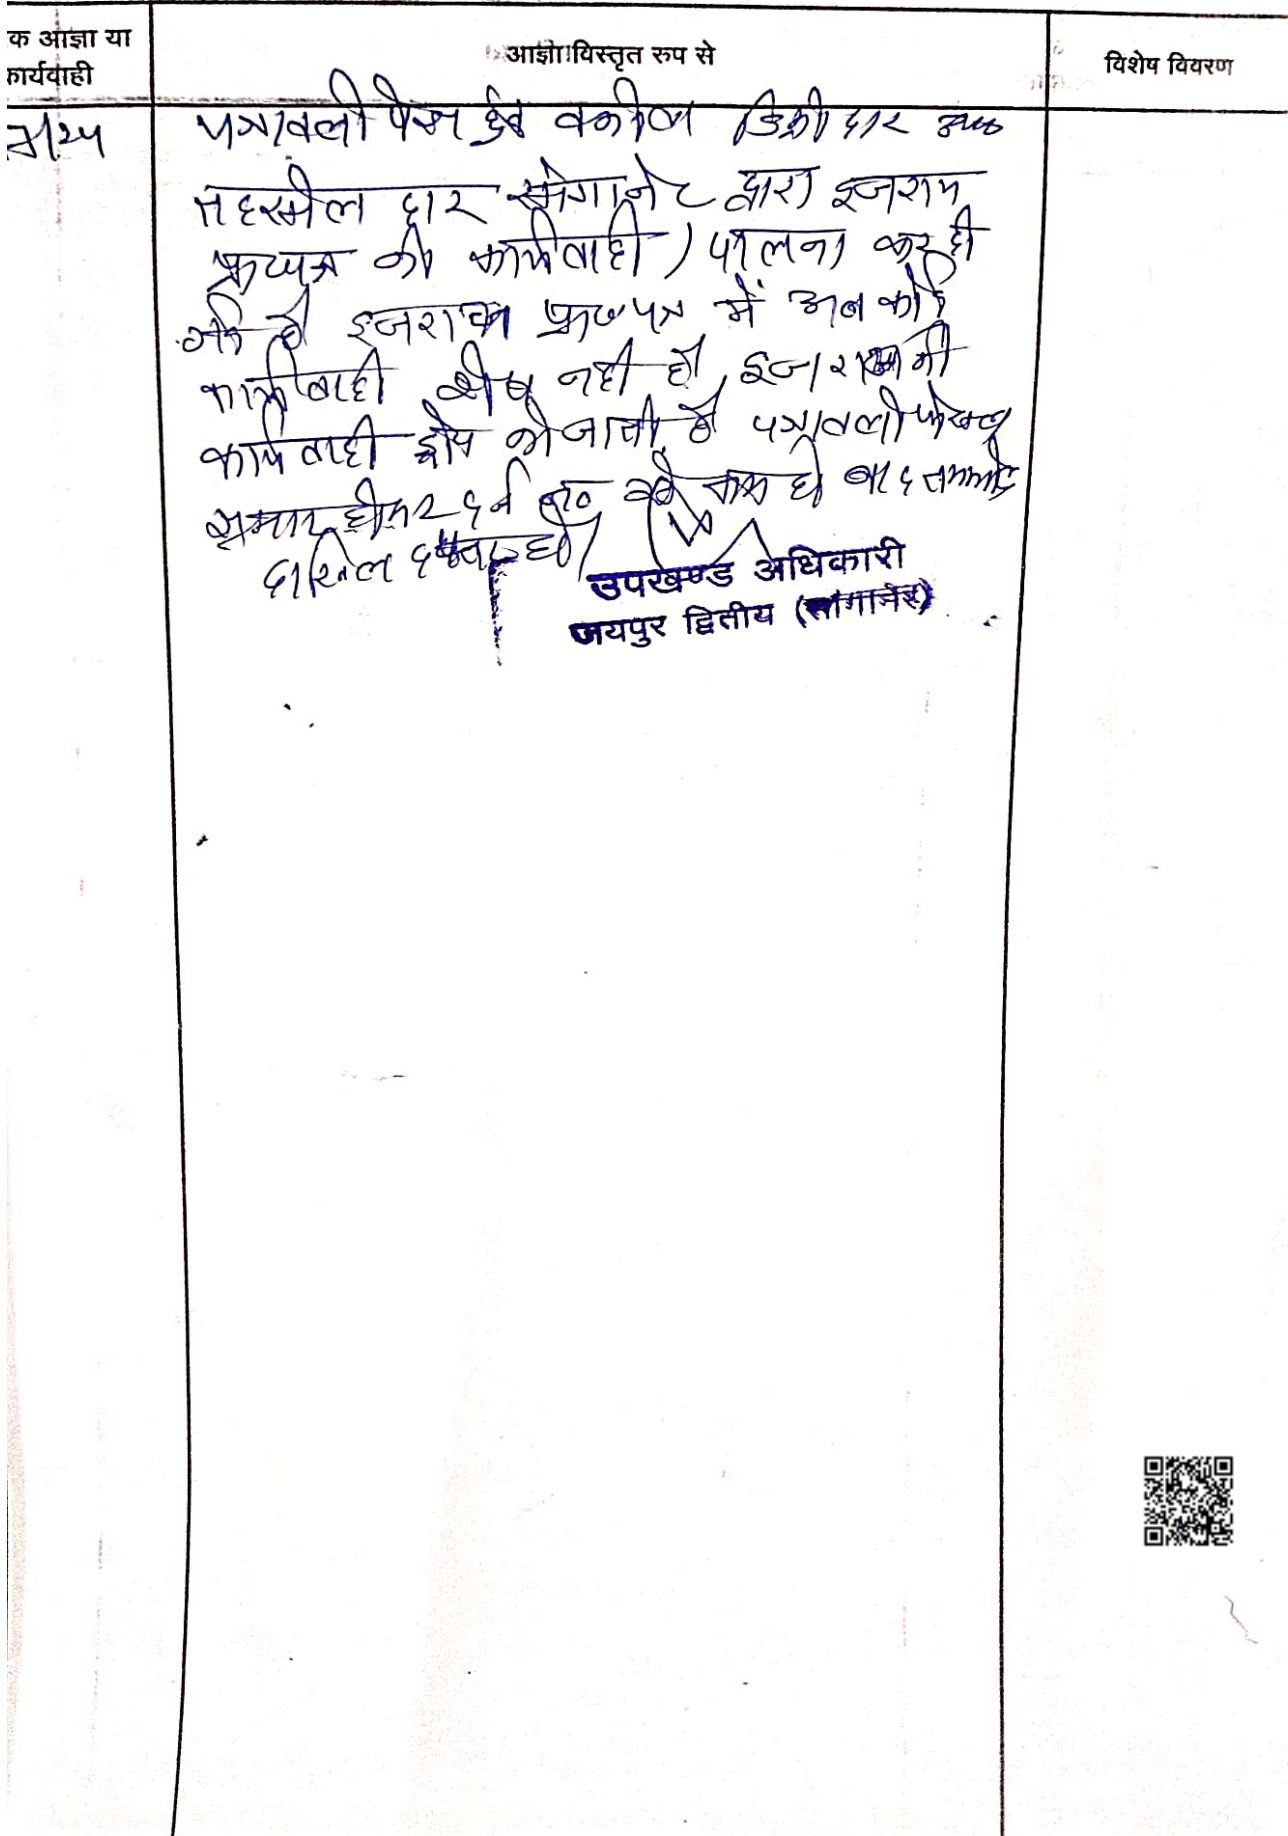 क आज्ञा या
कार्यवाही
आज्ञा विस्तृत रुप से
विशेष विवरण
पत्रावली पेश हुई वकील डिक्री दार उप०
तहसील दार सांगानेर द्वारा इजराय
प्रा०पत्र की कार्यवाही / पालना कर दी
गई है इजराय प्रा०पत्र में अब कोई
कार्यवाही शेष नही है इजराय की
कार्यवाही ड्रोप की जाती है पत्रावली फैसल
शुमार होकर दर्ज न० से कम हो बाद तकमील
दाखिल दफ्तर हो
उपखण्ड अधिकारी
जयपुर द्वितीय (सांगानेर)